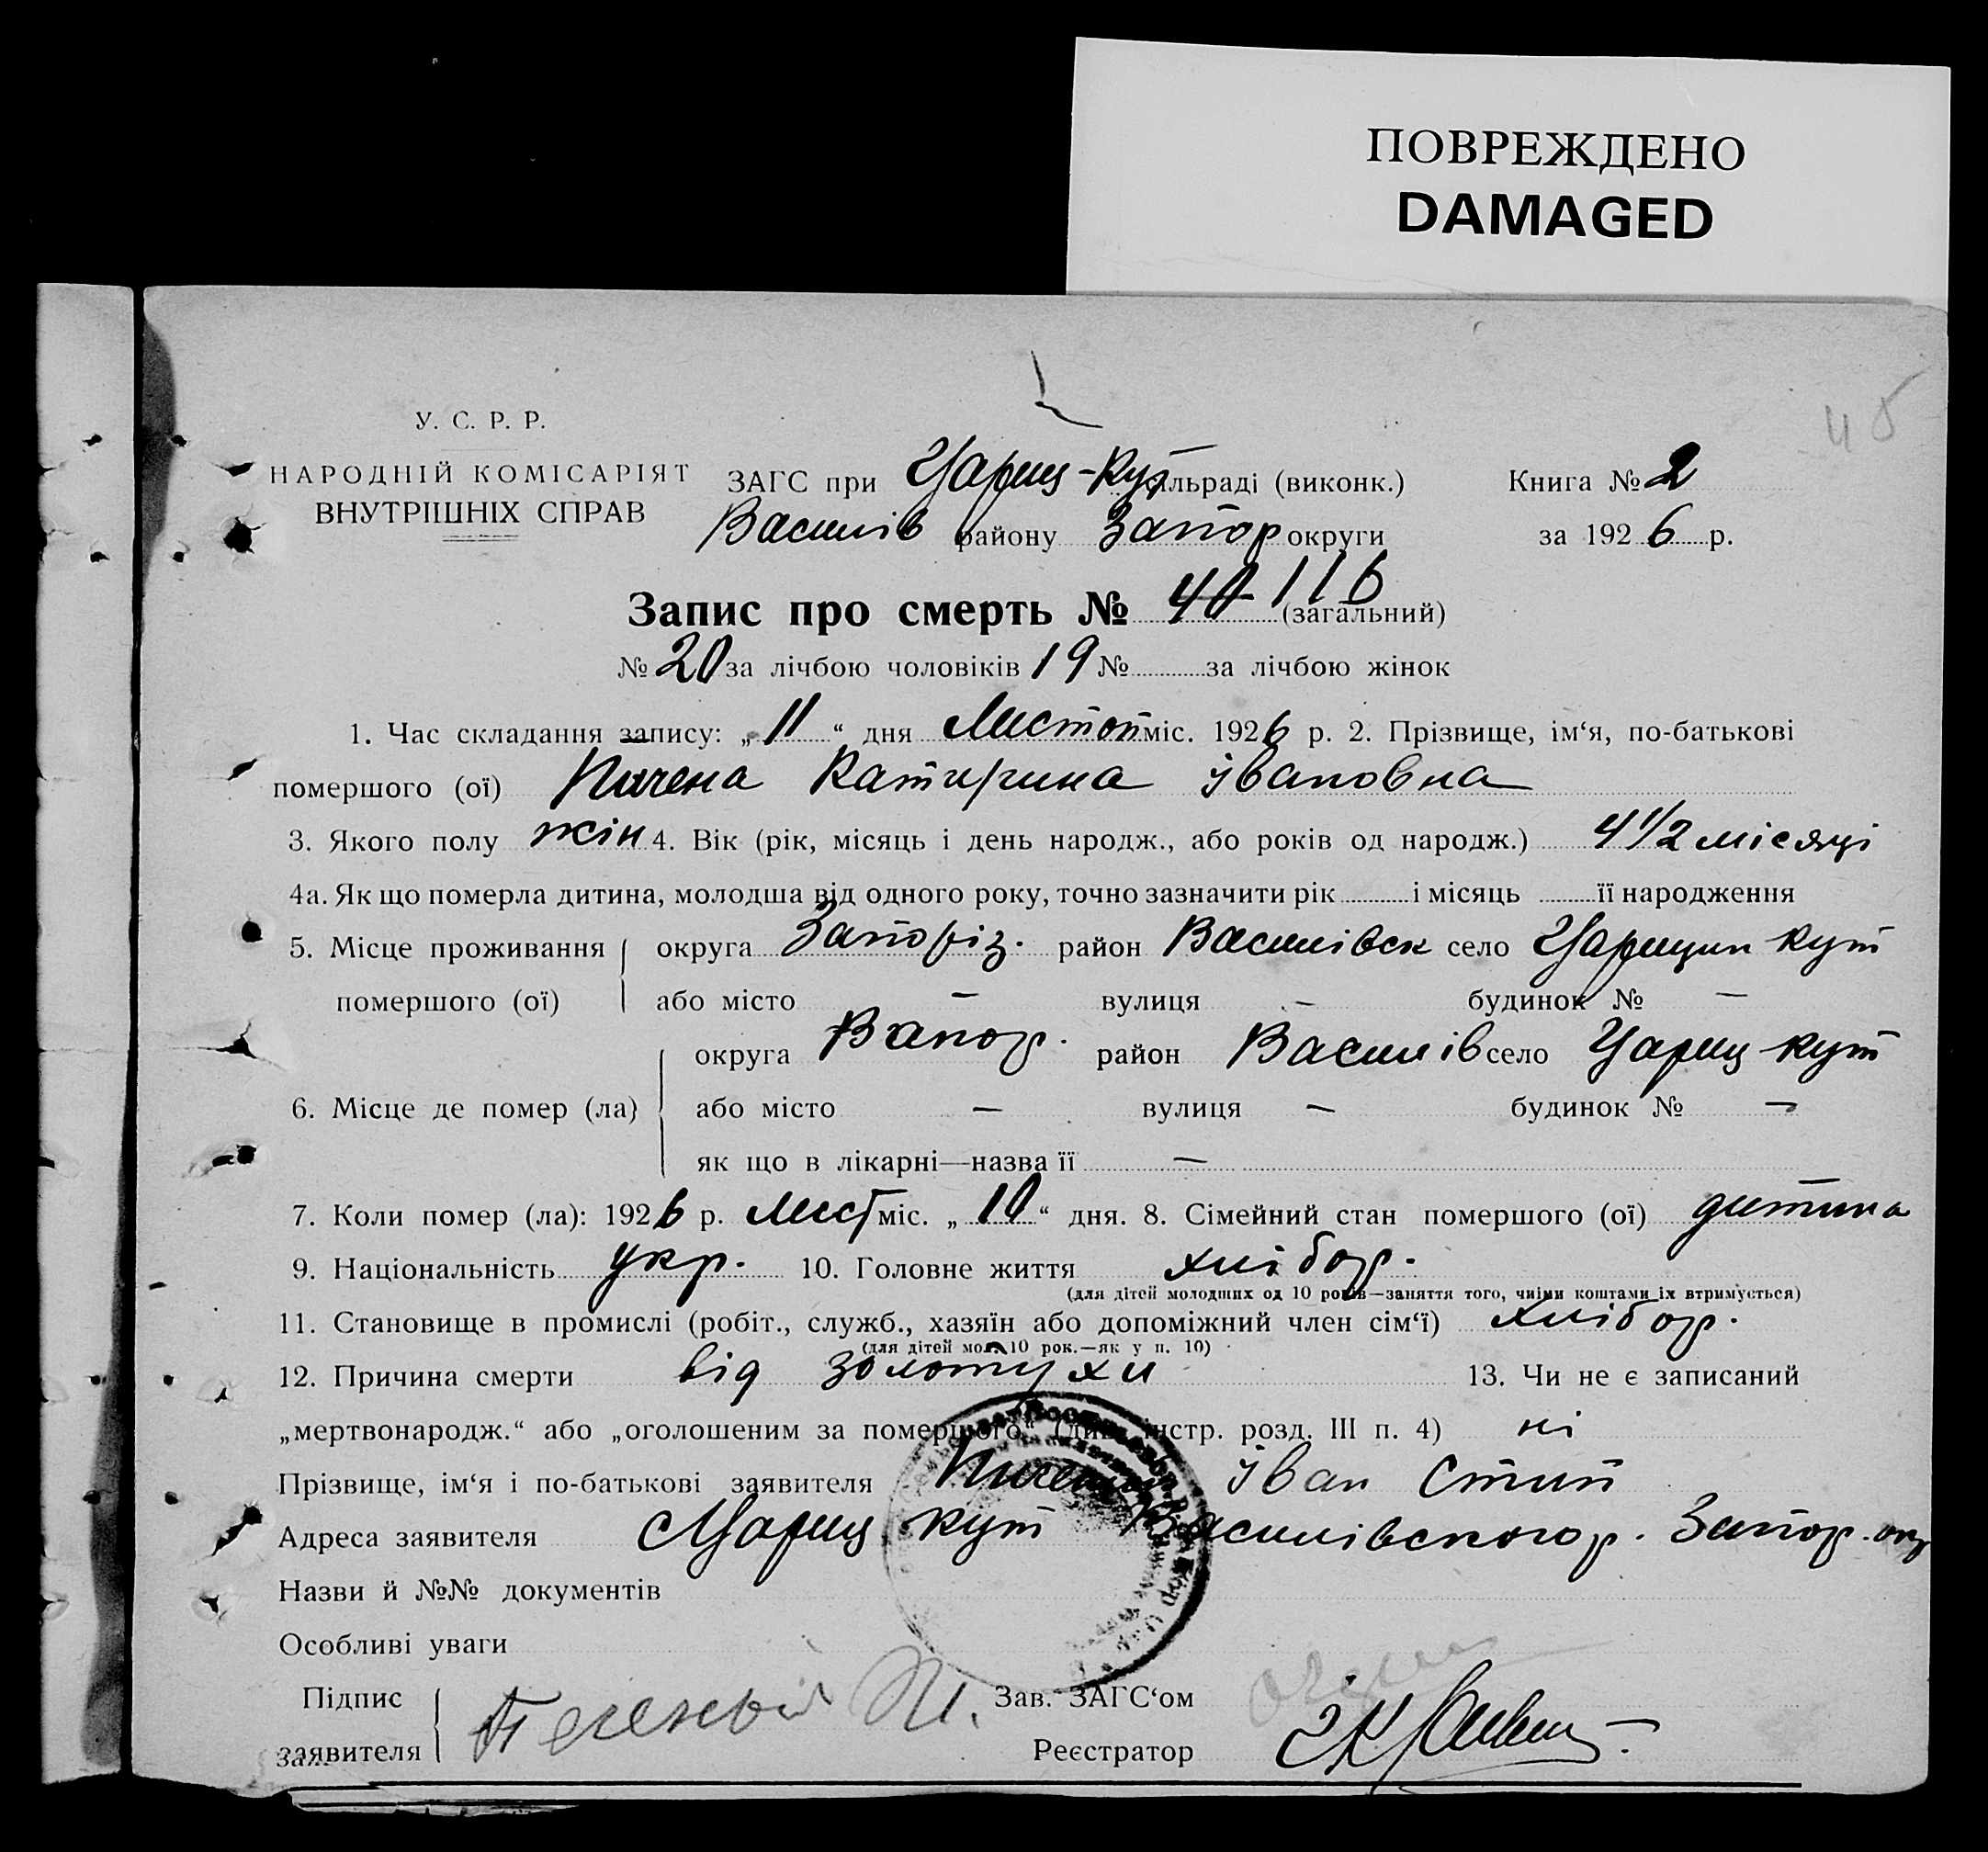 ПОВРЕЖДЕНО
DAMAGED
45
У. С. Р. Р.
НАРОДНІЙ КОМІСАРІЯТ
ВНУТРІШНІХ СПРАВ
ЗАГС при Цариц-Кут сільраді (виконк.)
Василів району Запор округи
Книга № 2
за 1926 р.
Запис про смерть № 40 116 (загальний)
№ 20 за лічбою чоловіків 19 № за лічбою жінок
1. Час складання запису: „11“ дня Листоп міс. 1926 р. 2. Прізвище, ім‘я, по-батькові
помершого (ої) Катирина Івановна
3. Якого полу жін 4. Вік (рік, місяць і день народж., або років од народж.) 4 1/2 місяці
4а. Як що померла дитина, молодша від одного року, точно зазначити рік і місяць її народження
5. Місце проживання округа Запоріз. район Василівск село Царицин кут
помершого (ої) або місто — вулиця — будинок № —
округа Запор. район Василів село Цариц кут
6. Місце де помер (ла) або місто — вулиця — будинок № —
як що в лікарні—назва її —
7. Коли помер (ла): 1926 р. Лист міс. „10“ дня. 8. Сімейний стан помершого (ої) дитина
9. Національність укр. 10. Головне життя хлібор.
(для дітей молодших од 10 років—заняття того, чиїми коштами їх втримується)
11. Становище в промислі (робіт., служб., хазяїн або допоміжний член сім‘ї) хлібор.
(для дітей мол. 10 рок.—як у п. 10)
12. Причина смерти від золотухи 13. Чи не є записаний
„мертвонародж.“ або „оголошеним за помершого“ (див. інстр. розд. III п. 4) ні
Прізвище, ім‘я і по-батькові заявителя Іван Стип
Адреса заявителя с Цариц кут Василівского р. Запор. окр
Назви й №№ документів
Особливі уваги
Підпис
заявителя
Зав. ЗАГС‘ом
Реєстратор